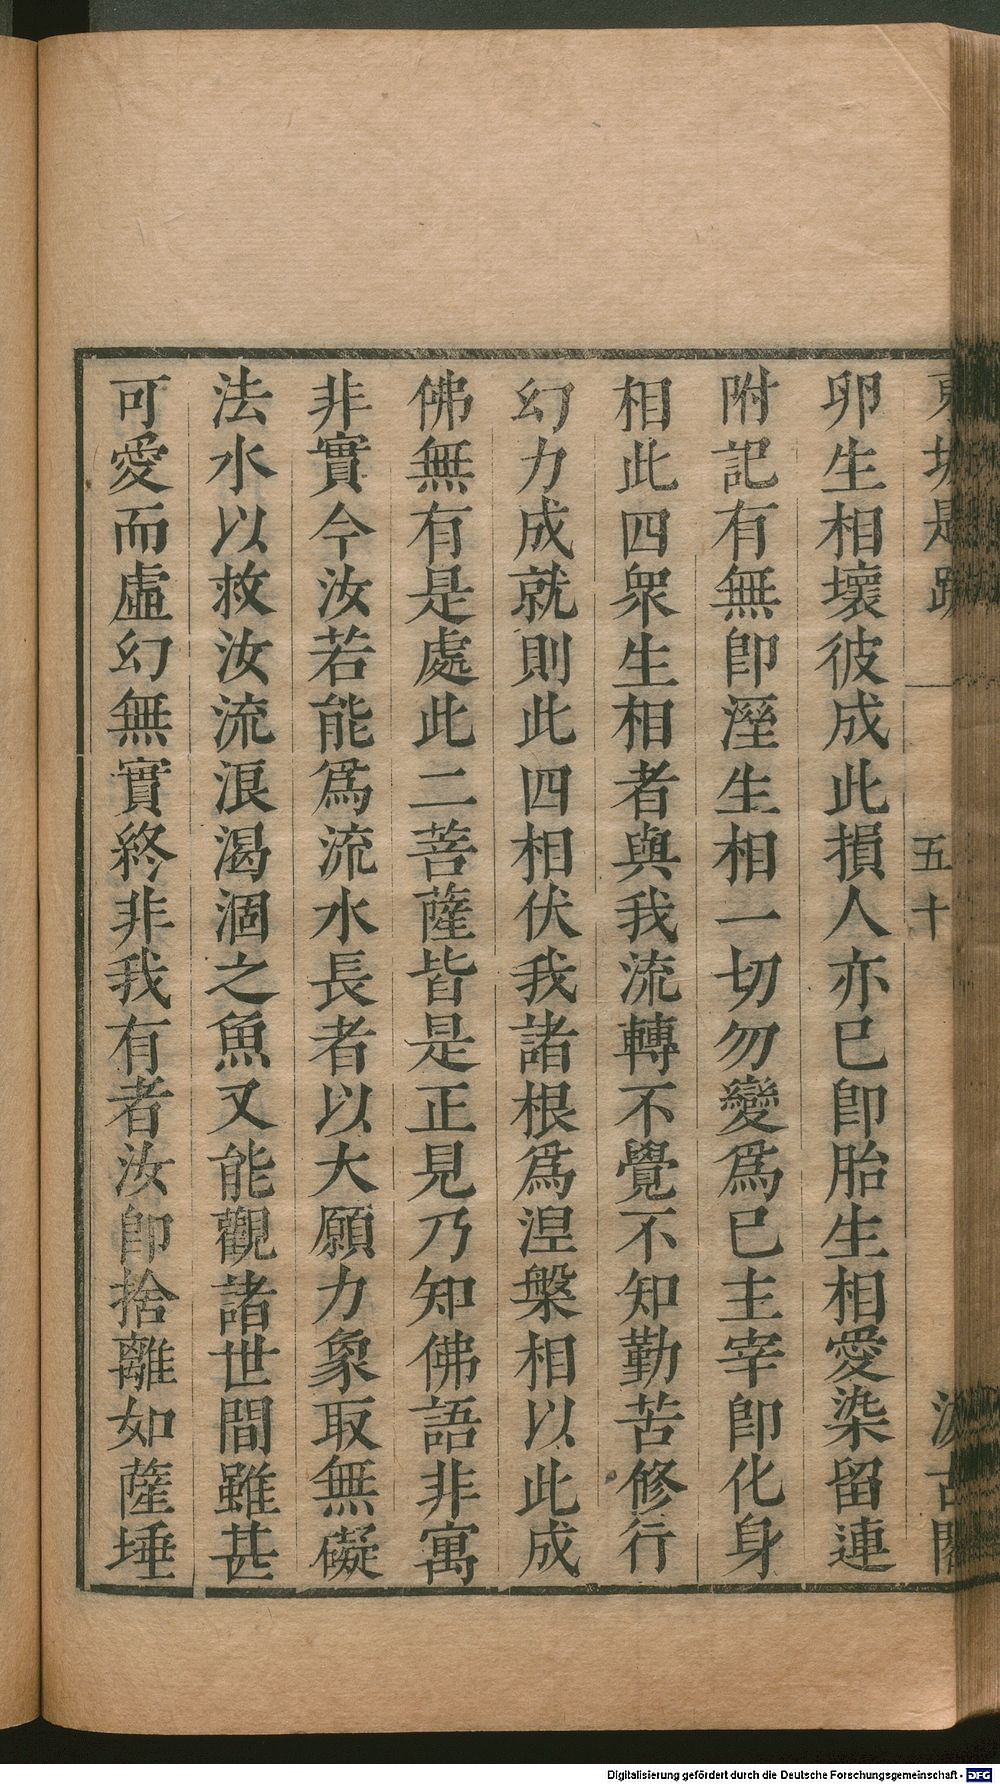 東坡題跋 五十 汲古閣
卵生相壞彼成此損人亦已卽胎生相愛染留連
附記有無卽溼生相一切勿變爲已主宰卽化身
相此四衆生相者與我流轉不覺不知勤苦修行
幻力成就則此四相伏我諸根爲涅槃相以此成
佛無有是處此二菩薩皆是正見乃知佛語非寓
非實今汝若能爲流水長者以大願力象取無礙
法水以救汝流浪渴涸之魚又能觀諸世間雖甚
可愛而虛幻無實終非我有者汝卽捨離如薩埵
Digitalisierung gefördert durch die Deutsche Forschungsgemeinschaft - DFG